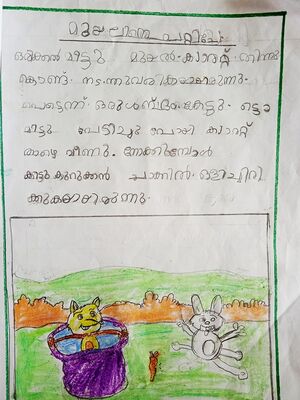 മുയലിനെ പറ്റിച്ചേ
ഒരിക്കൽ മിട്ടു മുയൽ ക്യാരറ്റ് തിന്നു
കൊണ്ട് നടന്നുവരികയായിരുന്നു.
പെട്ടെന്ന് ഒരു ശബ്ദം കേട്ടു. ട്ടൊ
മിട്ടു പേടിച്ചു പോയി ക്യാരറ്റ്
താഴെ വീണു. നോക്കിയപ്പോൾ
കിട്ടു കുറുക്കൻ ചാക്കിൽ ഒളിച്ചിരി
ക്കുകയായിരുന്നു.